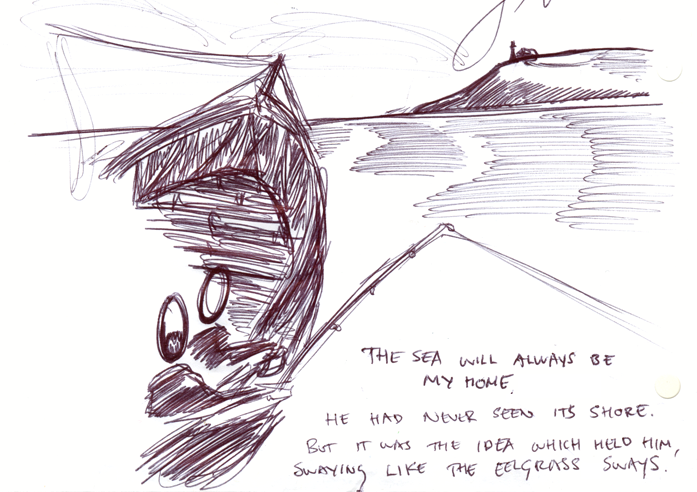 THE SEA WILL ALWAYS BE
MY HOME.
HE HAD NEVER SEEN ITS SHORE.
BUT IT WAS THE IDEA WHICH HELD HIM,
SWAYING LIKE THE EELGRASS SWAYS.